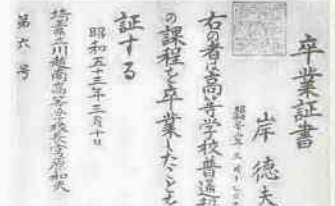 卒業証書
岸徳夫
右の者は高等学校普通
の課程を卒業したことを
証する
昭和五十三年三月十日
埼玉県立川越南高等学校長
第六号